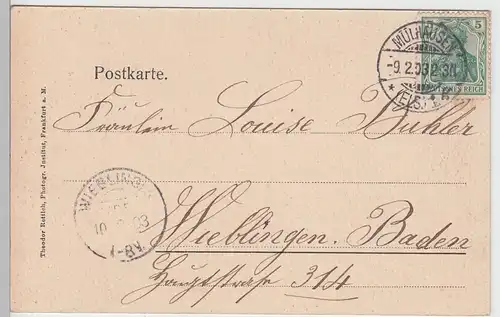 5
MÜLHAUSEN
-9.2.03 2-3N
* (ELS)
Postkarte.
Fräulein Louise Buhler
WIEBLINGEN
10 03
7-8V.
Wieblingen. Baden
Hauptstrasse 314
Theodor Rettich, Photogr. Institut, Frankfurt a. M.